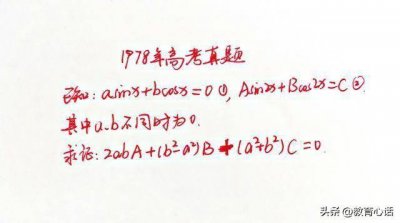 1978年高考真题
已知：asinx+bcosx=0 ①, Asin2x+Bcos2x=C ②
其中a、b不同时为0.
求证：2abA+(b²-a²)B+(a²+b²)C=0.
头条@教育心话